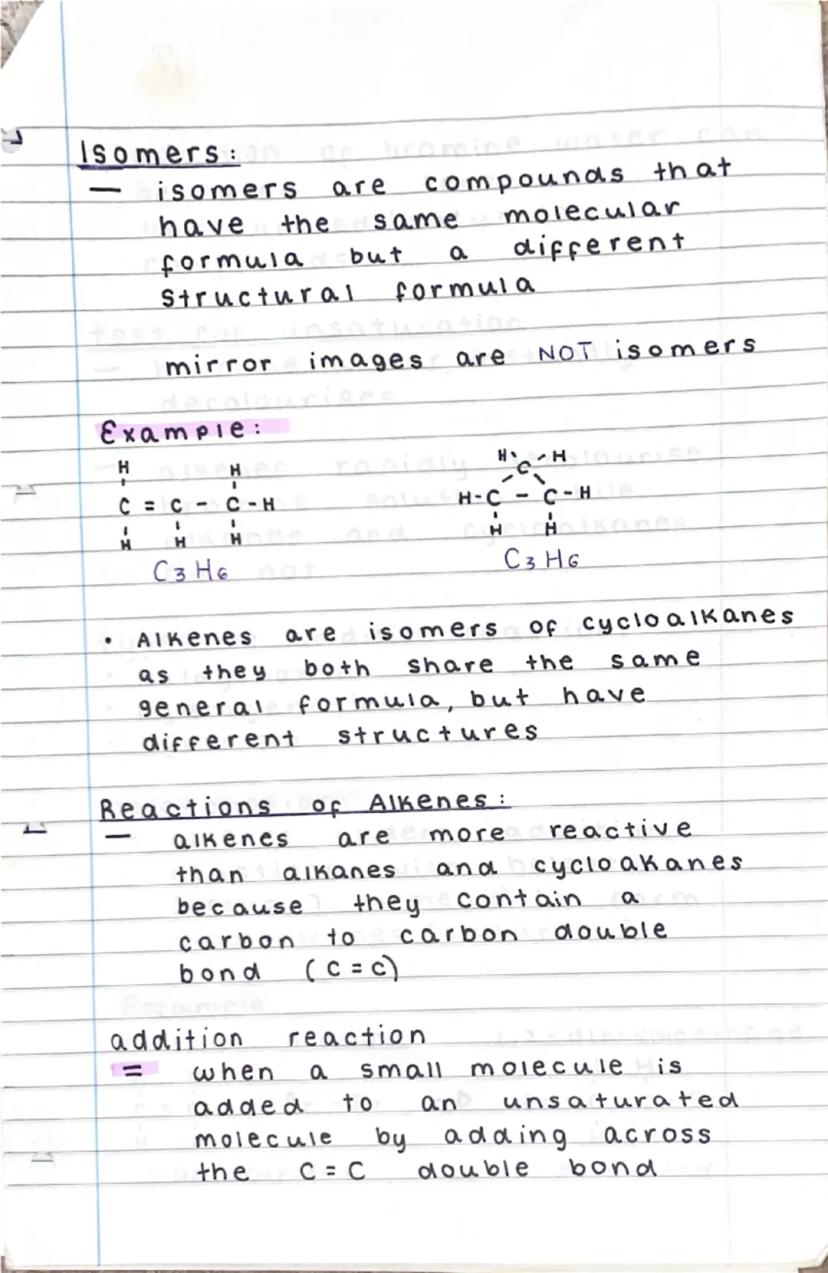 Isomers:
— isomers are compounds that
have the same molecular
formula but a different
structural formula
mirror images are NOT isomers
Example:
H H H H
C = C - C - H H - C - C - H
H H H H H
C3H6 C3H6
• Alkenes are isomers of cycloalkanes
as they both share the same
general formula, but have
different structures
Reactions of Alkenes:
— alkenes are more reactive
than alkanes and cycloakanes
because they contain a
carbon to carbon double
bond (C=C)
addition reaction
= when a small molecule is
added to an unsaturated
molecule by adding across
the C=C double bond